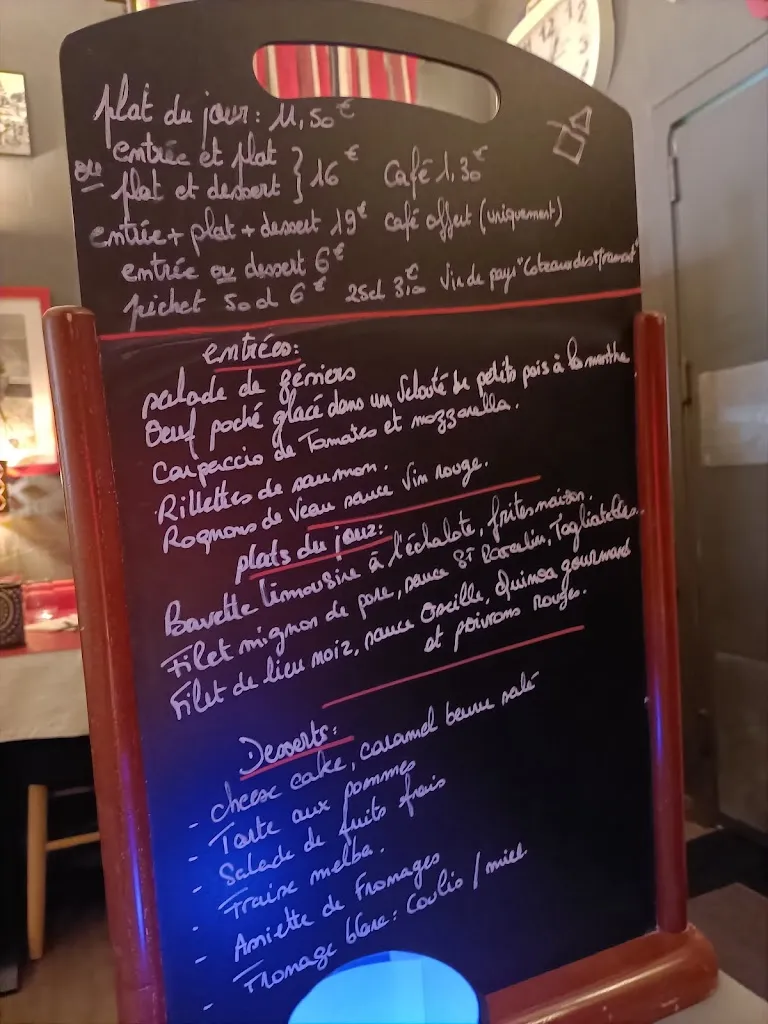 plat du jour: 11,50€
entrée et plat
ou plat et dessert } 16€ Café 1,30€
entrée + plat + dessert 19€ café offert (uniquement)
entrée ou dessert 6€
pichet 50cl 6€ 25cl 3,00€ Vin de pays "Coteaux des
entrées:
salade de gésiers
Oeuf poché glacé dans un velouté de petits pois à la menthe
Carpaccio de Tomates et mozzarella.
Rillettes de saumon.
Rognons de Veau sauce Vin rouge.
plats du jour:
Bavette limousine à l'échalote, frites maison.
Filet mignon de porc, sauce St Marcelin, Tagliatelles.
Filet de lieu noir, sauce Oseille, Quinoa gourmand
et poivrons Rouges.
Desserts:
- cheese cake, caramel beurre salé
- Tarte aux pommes
- Salade de fruits frais
- Fraise melba.
- Assiette de Fromages
- Fromage blanc: Coulis / miel